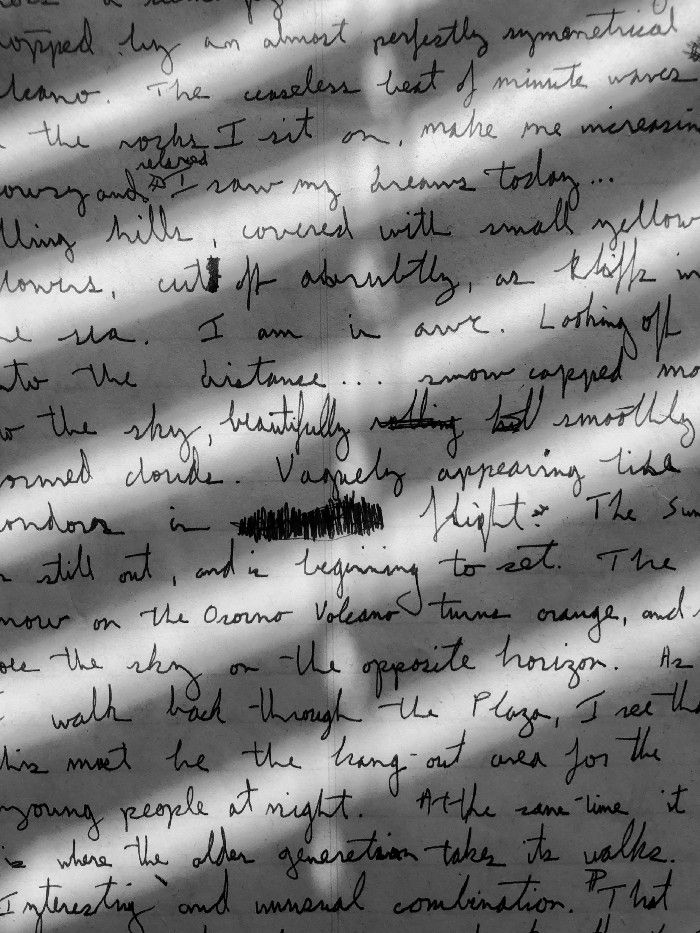 opped by an almost perfectly symmetrical
lcano. The ceaseless beat of minute waves
n the rocks I sit on, make me increasin
relaxed
owsy and I saw my dreams today...
lling hills, covered with small yellow
lowers, cut off abruptly, as kliffs in
he sea. I am in awe. Looking off
nto the distance.... snow capped mo
w the sky, beautifully smoothly
ormed clouds. Vaguely appearing like
ondors in flight. The Sun
s still out, and is beginning to set. The
now on the Osorno Volcano turns orange, and s
oes the sky on the opposite horizon. As
I walk back through the Plaza, I see tha
this must be the hang-out area for the
young people at night. At the same time it
is where the older generation takes its walks.
Interesting and unusual combination. That